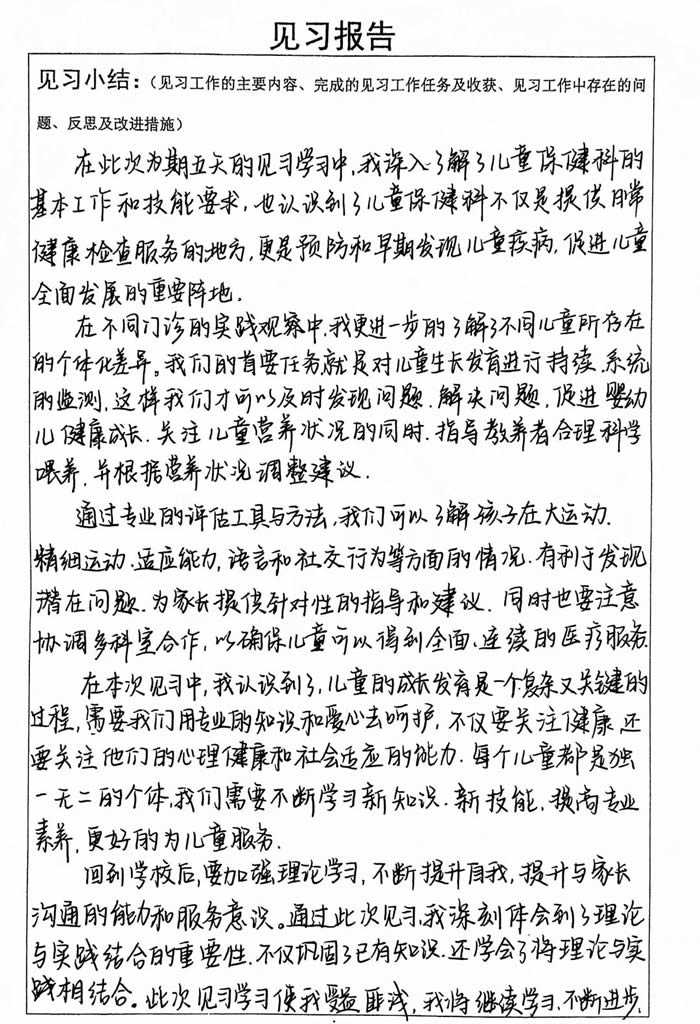 见习报告
见习小结：（见习工作的主要内容、完成的见习工作任务及收获、见习工作中存在的问
题、反思及改进措施）
在此次为期五天的见习学习中，我深入了解了儿童保健科的
基本工作和技能要求，也认识到了儿童保健科不仅是提供日常
健康检查服务的地方，更是预防和早期发现儿童疾病，促进儿童
全面发展的重要阵地.
在不同门诊的实践观察中，我更进一步的了解了不同儿童所存在
的个体化差异。我们的首要任务就是对儿童生长发育进行持续、系统
的监测，这样我们才可以及时发现问题.解决问题，促进婴幼
儿健康成长.关注儿童营养状况的同时.指导教养者合理科学
喂养，并根据营养状况调整建议.
通过专业的评估工具与方法，我们可以了解孩子在大运动.
精细运动.适应能力，语言和社交行为等方面的情况.有利于发现
潜在问题.为家长提供针对性的指导和建议.同时也要注意
协调多科室合作，以确保儿童可以得到全面、连续的医疗服务.
在本次见习中，我认识到了，儿童的成长发育是一个复杂又关键的
过程，需要我们用专业的知识和爱心去呵护，不仅要关注健康，还
要关注他们的心理健康和社会适应的能力.每个儿童都是独
一无二的个体，我们需要不断学习新知识.新技能，提高专业
素养，更好的为儿童服务.
回到学校后，要加强理论学习，不断提升自我，提升与家长
沟通的能力和服务意识。通过此次见习，我深刻体会到了理论
与实践结合的重要性.不仅巩固了已有知识.还学会了将理论与实
践相结合。此次见习学习使我受益匪浅，我将继续学习.不断进步.